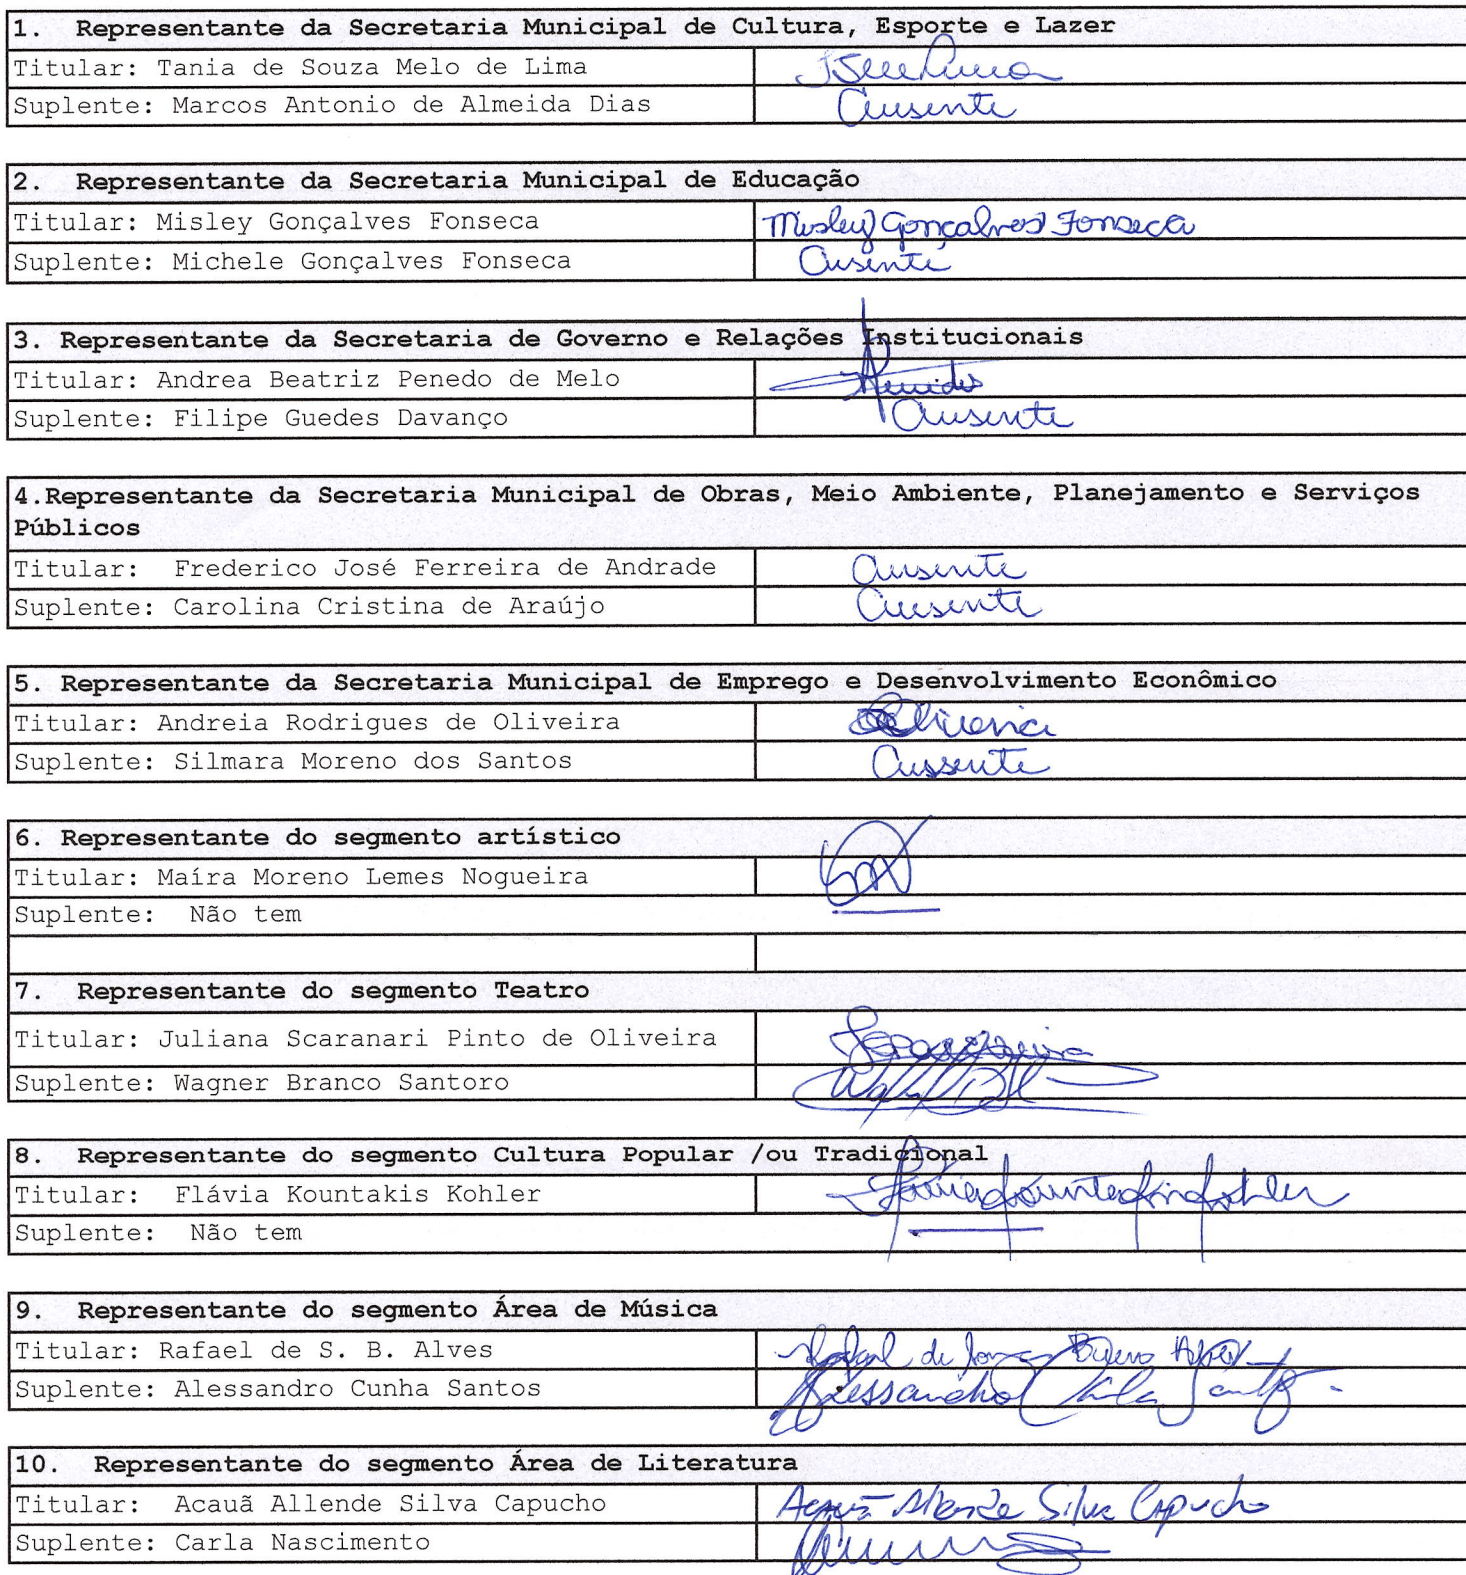 1. Representante da Secretaria Municipal de Cultura, Esporte e Lazer
Titular: Tania de Souza Melo de Lima
Suplente: Marcos Antonio de Almeida Dias Ausente
2. Representante da Secretaria Municipal de Educação
Titular: Misley Gonçalves Fonseca Misley Gonçalves Fonseca
Suplente: Michele Gonçalves Fonseca Ausente
3. Representante da Secretaria de Governo e Relações Institucionais
Titular: Andrea Beatriz Penedo de Melo
Suplente: Filipe Guedes Davanço Ausente
4.Representante da Secretaria Municipal de Obras, Meio Ambiente, Planejamento e Serviços
Públicos
Titular: Frederico José Ferreira de Andrade Ausente
Suplente: Carolina Cristina de Araújo Ausente
5. Representante da Secretaria Municipal de Emprego e Desenvolvimento Econômico
Titular: Andreia Rodrigues de Oliveira Oliveira
Suplente: Silmara Moreno dos Santos Aussente
6. Representante do segmento artístico
Titular: Maíra Moreno Lemes Nogueira
Suplente: Não tem
7. Representante do segmento Teatro
Titular: Juliana Scaranari Pinto de Oliveira
Suplente: Wagner Branco Santoro
8. Representante do segmento Cultura Popular /ou Tradicional
Titular: Flávia Kountakis Kohler Flávia Kountakis Kohler
Suplente: Não tem
9. Representante do segmento Área de Música
Titular: Rafael de S. B. Alves Rafael de Souza Bueno Alves
Suplente: Alessandro Cunha Santos Alessandro Cunha Santos
10. Representante do segmento Área de Literatura
Titular: Acauã Allende Silva Capucho Acauã Allende Silva Capucho
Suplente: Carla Nascimento